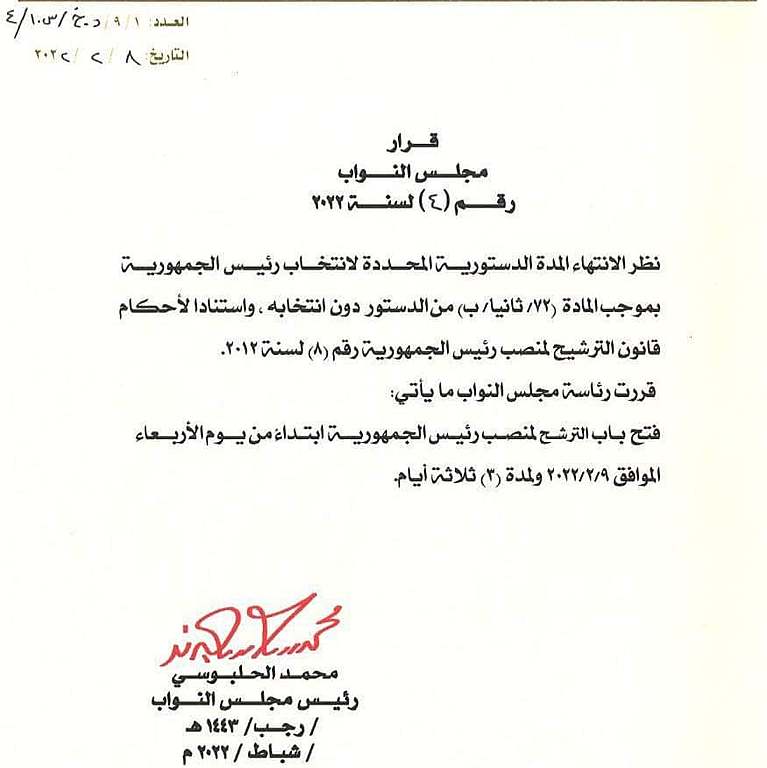 العدد: ١ / ٩ /
التاريخ: ٨ / ٢ / ٢٠٢٢
قـــرار
مجلـس النـــواب
رقـــم (٤) لسنـــة ٢٠٢٢
نظر الانتهاء المدة الدستوريـة المحـددة لانتخـاب رئيـس الجمهوريـة
بموجب المادة (٧٢/ ثانيا/ ب) من الدستور دون انتخابه ، واستنادا لأحكام
قانون الترشيح لمنصب رئيس الجمهورية رقم (٨) لسنة ٢٠١٢.
قررت رئاسة مجلس النواب ما يأتي:
فتح باب الترشح لمنصب رئيس الجمهوريـة ابتـداءَ من يـوم الأربـعـاء
الموافق ٢٠٢٢/٢/٩ ولمدة (٣) ثلاثة أيام.
محمـد الحلبـوسـي
رئيـس مجلـس النـواب
/ رجـب/ ١٤٤٣ هـ
/ شباط / ٢٠٢٢ م